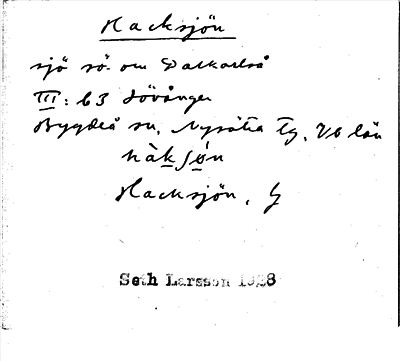 Hacksjön
sjö sö. om Dalkarlså
III: 63 Lövånger
Bygdeå sn, Nysätra tg, Vb län
hàkʃøn
Hacksjön,
Seth Larsson 1928